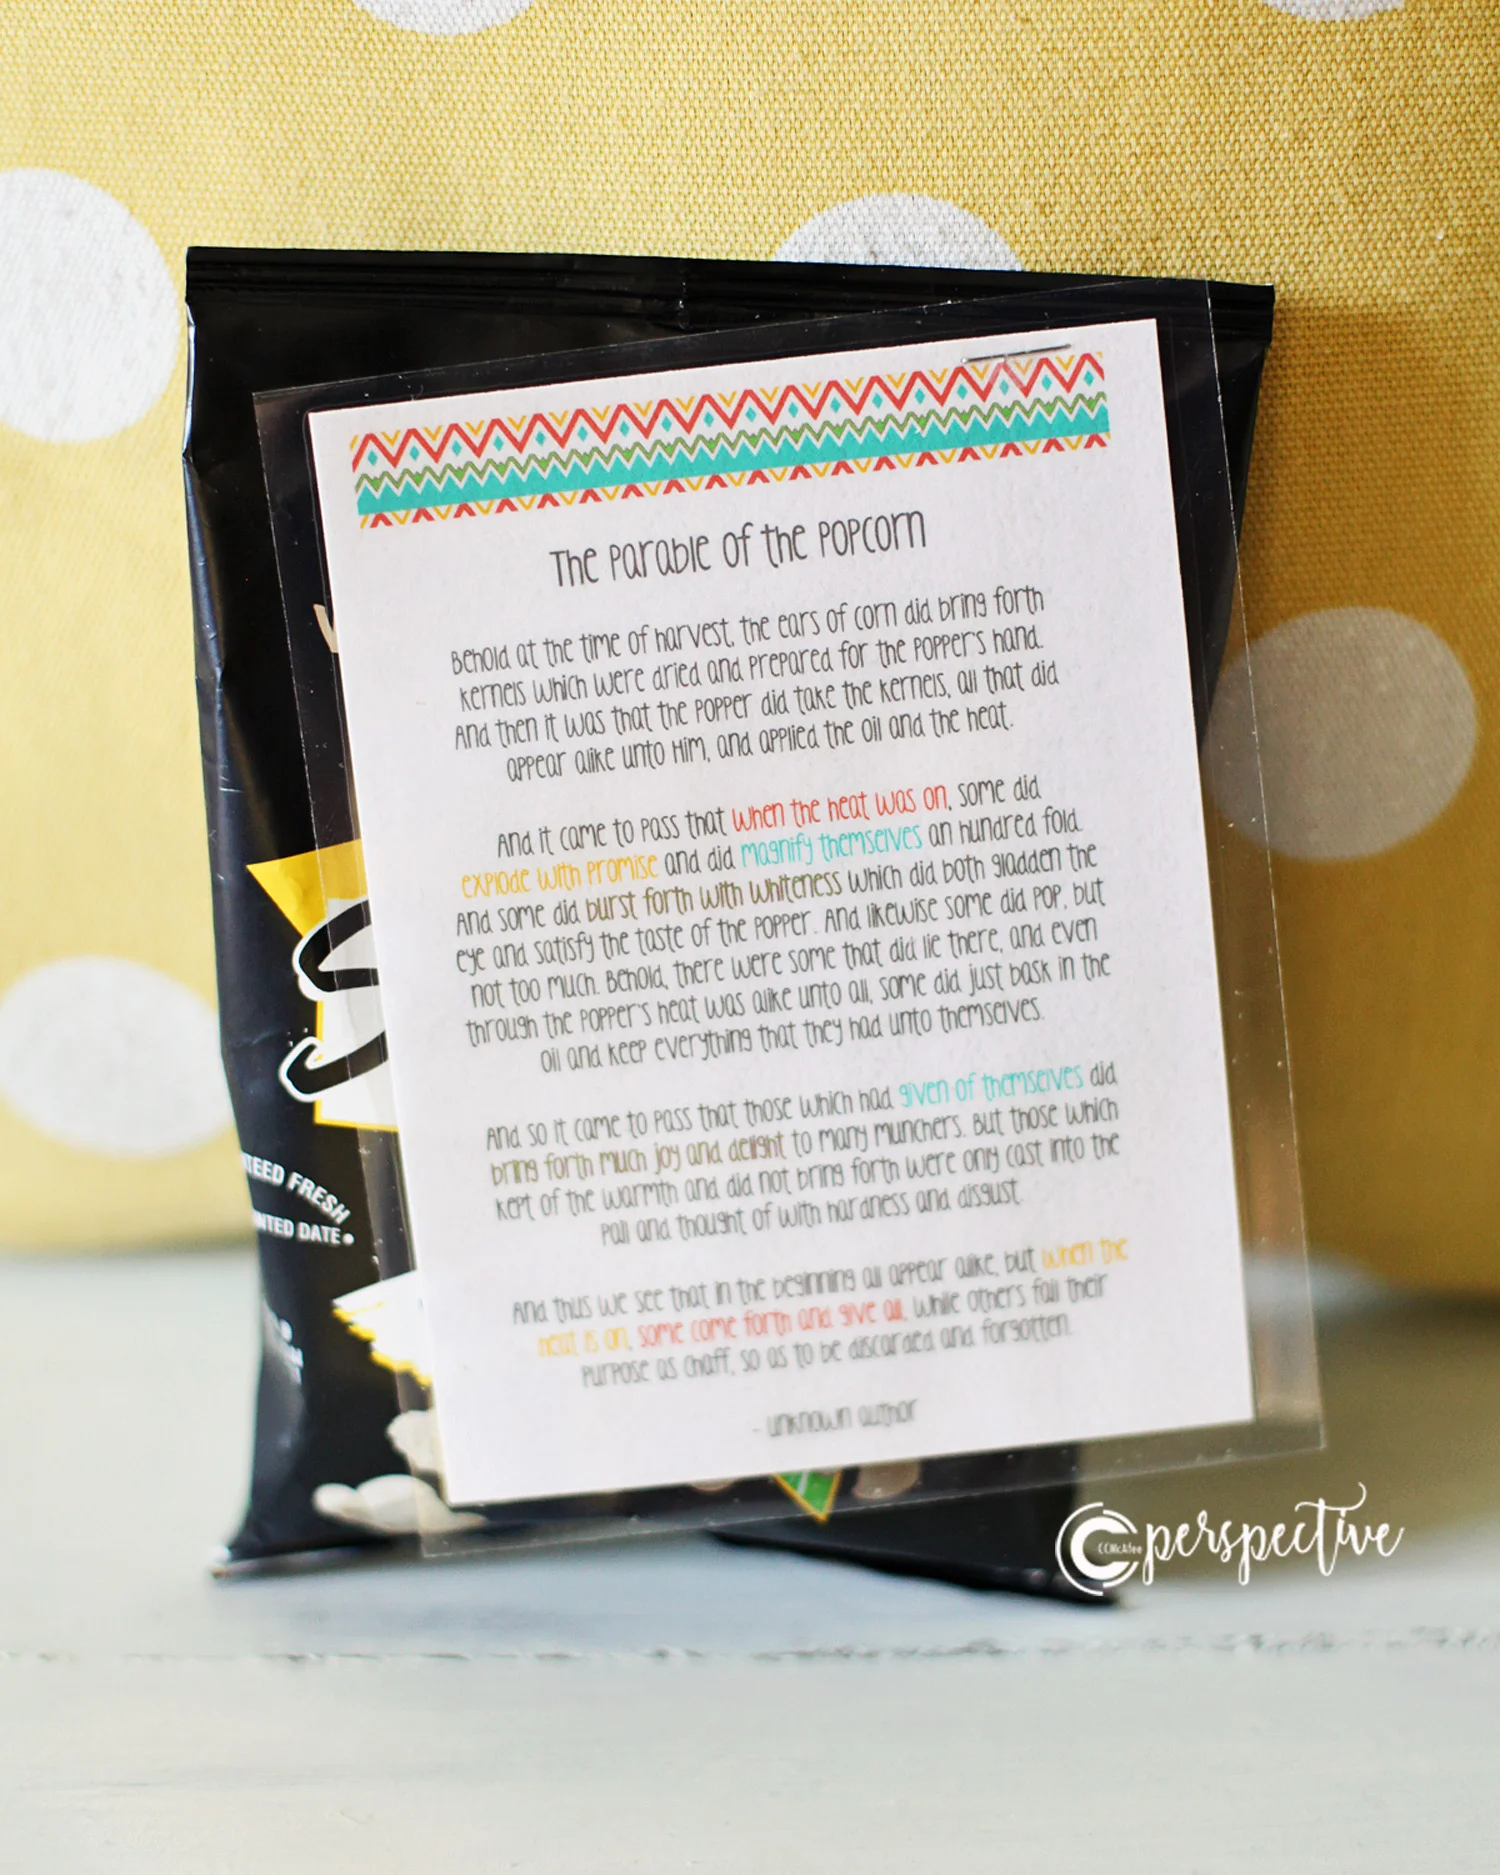 The Parable of the Popcorn
Behold at the time of harvest, the ears of corn did bring forth
kernels which were dried and prepared for the popper's hand.
And then it was that the popper did take the kernels, all that did
appear alike unto Him, and applied the oil and the heat.
And it came to pass that when the heat was on, some did
explode with promise and did magnify themselves an hundred fold.
And some did burst forth with whiteness which did both gladden the
eye and satisfy the taste of the popper. And likewise some did pop, but
not too much. Behold, there were some that did lie there, and even
through the popper's heat was alike unto all, some did just bask in the
oil and keep everything that they had unto themselves.
And so it came to pass that those which had given of themselves did
bring forth much joy and delight to many munchers. But those which
kept of the warmth and did not bring forth were only cast into the
pail and thought of with hardness and disgust.
And thus we see that in the beginning all appear alike, but when the
heat is on, some come forth and give all, while others fail their
purpose as chaff, so as to be discarded and forgotten.
- unknown author
TEED FRESH
NTED DATE•
CCMcAfee
perspective